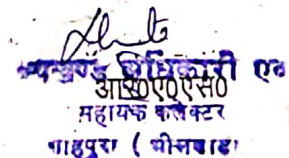 उपखण्ड अधिकारी एवं
आर०ए०एस०
सहायक कलेक्टर
शाहपुरा ( भीलवाड़ा